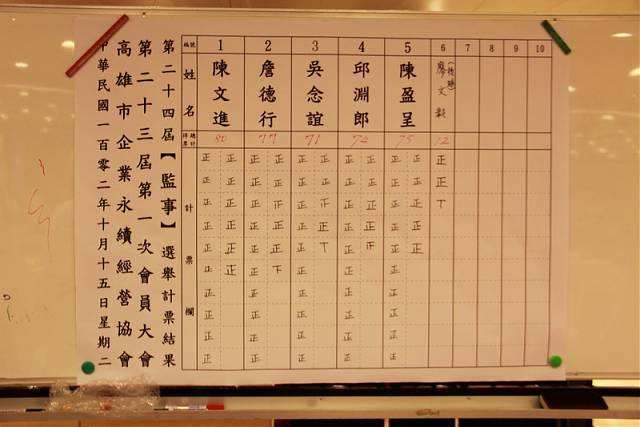 中華民國一百零二年十月十五日星期二
高雄市企業永續經營協會
第二十三屆第一次會員大會
第二十四屆【監事】選舉計票結果
編號 1 2 3 4 5 6 7 8 9 10
姓名 陳文進 詹德行 吳念誼 邱淵郎 陳盈呈 廖文毅(後補)
得票總計 80 77 71 74 75 12
計票欄
正 正 正 正 正 正 正 正 正 正 正
正 正 正 正 正 正 正 正 正 正 正
正 正 正 正 正 正 正 正 正 正 丅
正 正 正 正 正 正 正 正 正 正
正 正 正 正 正 丅 正 正 正
正 正 正 下 正 正 正
正 正 正 正 正
正 正 正 正 正
正 正 正 正 正
正 正 正 正 正